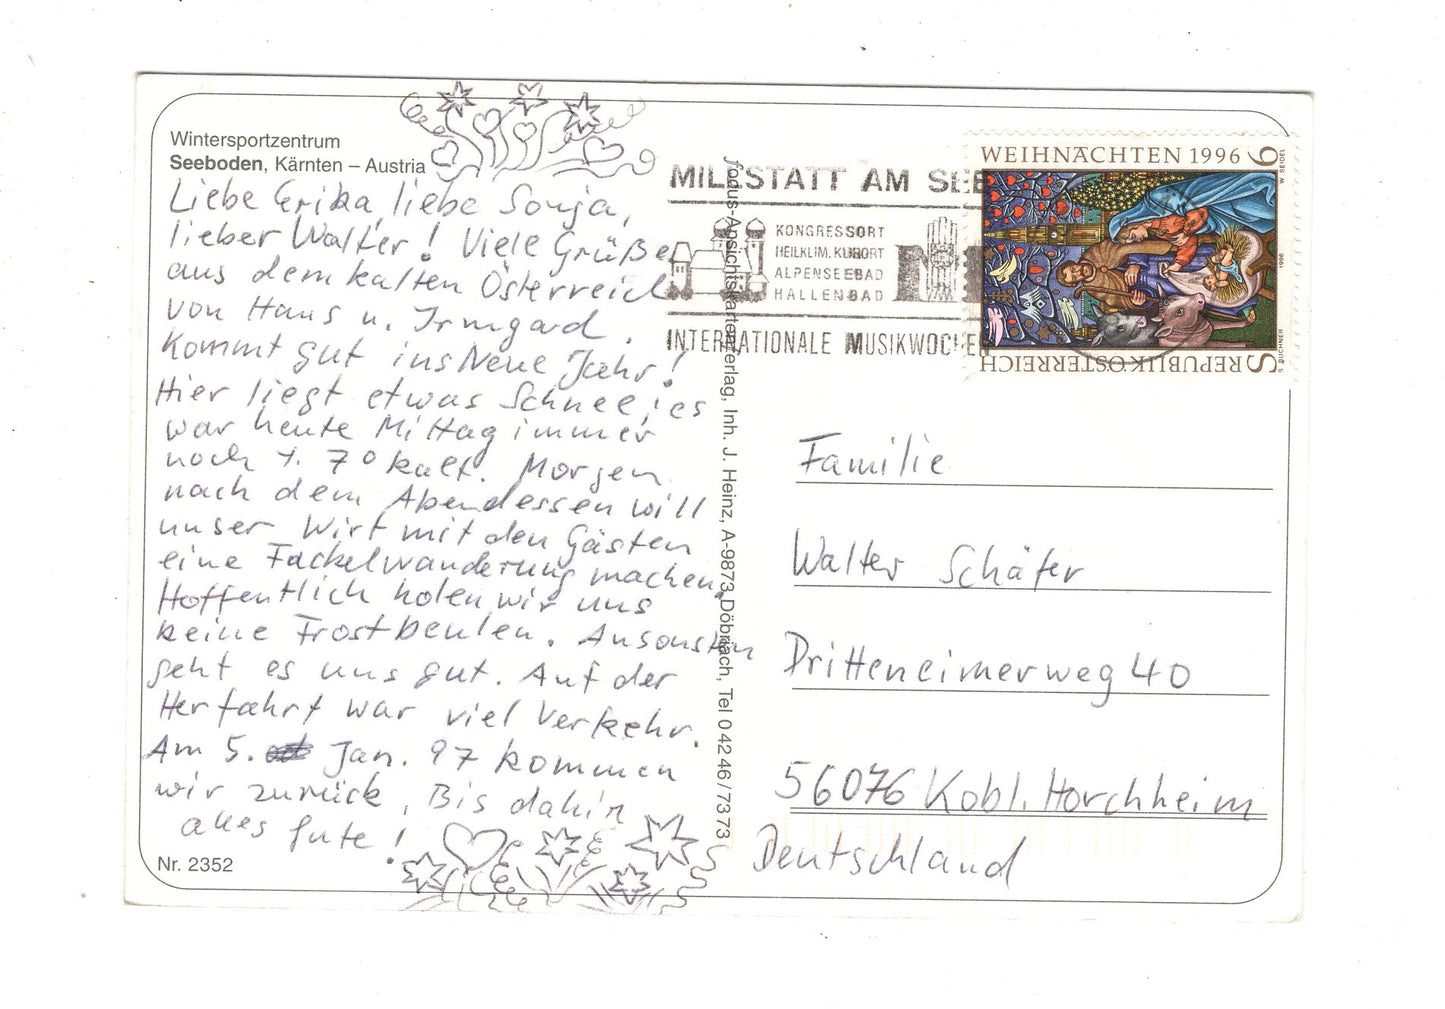 Wintersportzentrum
Seeboden, Kärnten – Austria
Liebe Erika, liebe Sonja,
lieber Walter! Viele Grüße
aus dem kalten Österreich
von Hans u. Irmgard.
Kommt gut ins Neue Jahr!
Hier liegt etwas Schnee, es
war heute Mittag immer
noch ⁒ 7° kalt. Morgen
nach dem Abendessen will
unser Wirt mit den Gästen
eine Fackelwanderung machen.
Hoffentlich holen wir uns
keine Frostbeulen. Ansonsten
geht es uns gut. Auf der
Herfahrt war viel Verkehr.
Am 5. Jan. 97 kommen
wir zurück, Bis dahin
alles Gute!
Nr. 2352
fodus-Ansichtskartenverlag, Inh. J. Heinz, A-9873 Döbriach, Tel 0 42 46 / 73 73
MILLSTATT AM SEE
KONGRESSORT
HEILKLIM. KURORT
ALPENSEEBAD
HALLENBAD
INTERNATIONALE MUSIKWOCHEN
WEIHNACHTEN 1996
6
W. SEIDEL
1996
S. BUCHNER
S REPUBLIK ÖSTERREICH
Familie
Walter Schäfer
Dritteneimerweg 40
56076 Kobl. Horchheim
Deutschland